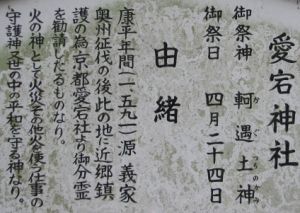 愛宕神社
御祭神 軻遇土神
かぐつちのかみ
御祭日 四月二十四日
由緒
康平年間(一、五九一)源義家
奥州征伐の後此の地に近郷鎮
護の為京都愛宕社より御分霊
を勧請したるものなり。
火の神として火災その他火を使う仕事の
守護神又世の中の平和を守る神なり。